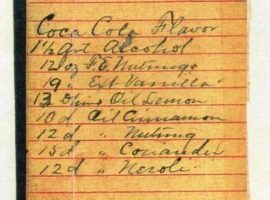 Coca Cola Flavor
1½ qrt Alcohol
12 oz F.E. Nutmegs
19 " Ext Vanilla
13 Drms Oil Lemon
10 d Oil Cinnamon
12 d " Nutmeg
15 d " Coriander
12 d " Neroli